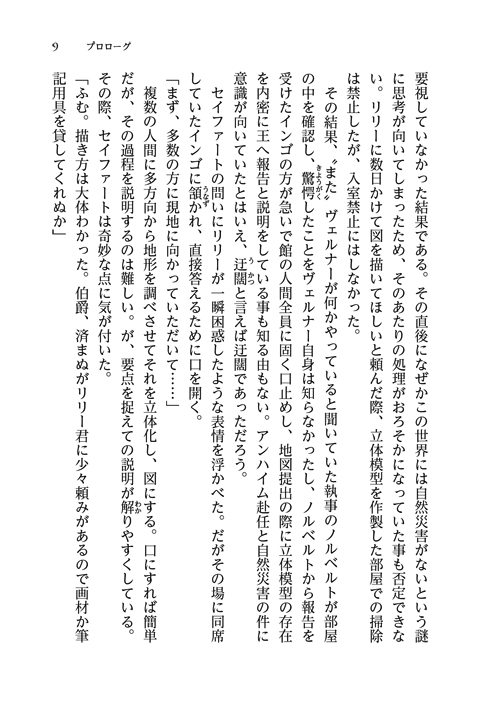 9　プロローグ
要視していなかった結果である。その直後になぜかこの世界には自然災害がないという謎
に思考が向いてしまったため、そのあたりの処理がおろそかになっていた事も否定できな
い。リリーに数日かけて図を描いてほしいと頼んだ際、立体模型を作製した部屋での掃除
は禁止したが、入室禁止にはしなかった。
　その結果、〝また〟ヴェルナーが何かやっていると聞いていた執事のノルベルトが部屋
の中を確認し、驚愕したことをヴェルナー自身は知らなかったし、ノルベルトから報告を
受けたインゴの方が急いで館の人間全員に固く口止めし、地図提出の際に立体模型の存在
を内密に王へ報告と説明をしている事も知る由もない。アンハイム赴任と自然災害の件に
意識が向いていたとはいえ、迂闊と言えば迂闊であっただろう。
　セイファートの問いにリリーが一瞬困惑したような表情を浮かべた。だがその場に同席
していたインゴに頷かれ、直接答えるために口を開く。
「まず、多数の方に現地に向かっていただいて……」
　複数の人間に多方向から地形を調べさせてそれを立体化し、図にする。口にすれば簡単
だが、その過程を説明するのは難しい。が、要点を捉えての説明が解りやすくしている。
その際、セイファートは奇妙な点に気が付いた。
「ふむ。描き方は大体わかった。伯爵、済まぬがリリー君に少々頼みがあるので画材か筆
記用具を貸してくれぬか」